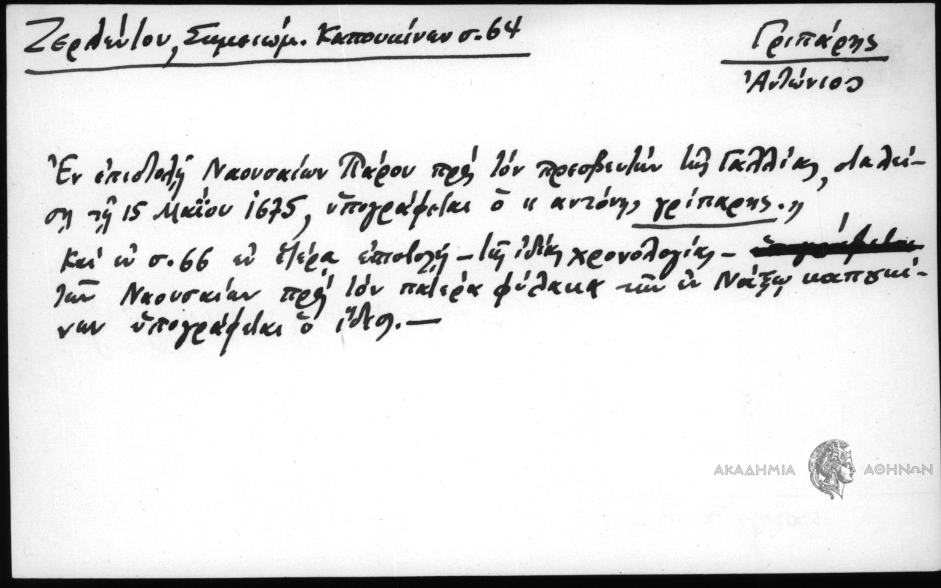 Ζερλέντου, Σημειώμ. Καπουκίνων σ. 64
Γριπάρης
Ἀντώνιος
Ἐν ἐπιστολῇ Ναουσαίων Πάρου πρὸς τὸν πρεσβευτὴν τῆς Γαλλίας, σταλεί-
σῃ τῇ 15 Μαΐου 1675, ὑπογράφεται ὁ κ αντόνης γρίπαρης. η
Καὶ ἐν σ. 66 ἐν ἑτέρᾳ ἐπιστολῇ – τῆς ἰδίας χρονολογίας –
τῶν Ναουσαίων πρὸς τὸν πατέρα φύλακα τῶν ἐν Νάξῳ καπουκί-
νων ὑπογράφεται ὁ ἴδιος. —
ΑΚΑΔΗΜΙΑ ΑΘΗΝΩΝ